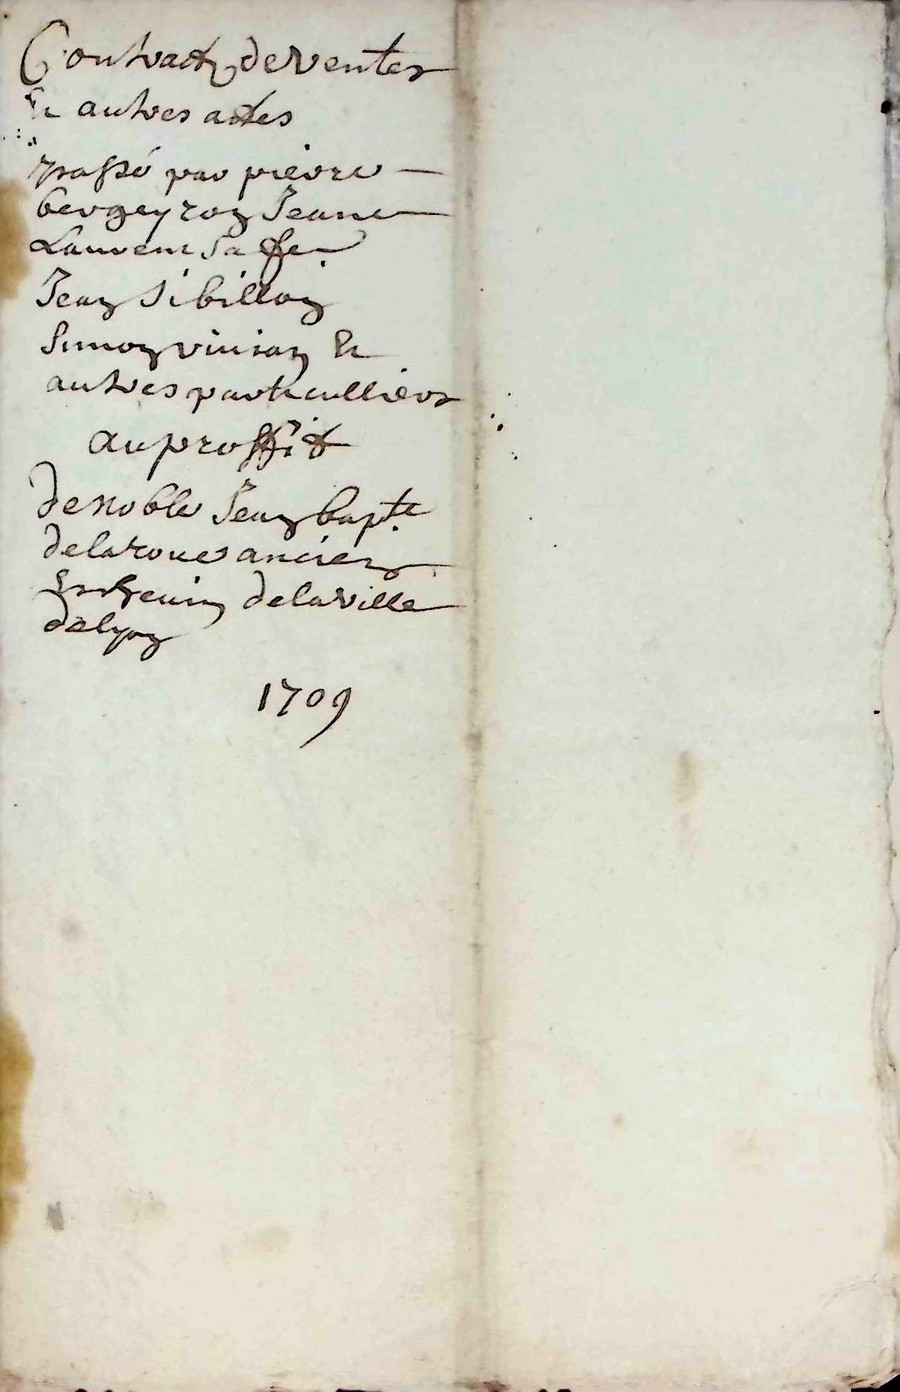 Contractz de ventes
& autres actes
passé par pierre
bergeyron Jeane
Laurent sa fe
Jean sibillon
Simon vivian &
autres particulliers
au proffit
de noble Jean bapte
de la roue ancien
Eschevin de la ville
de lyon
1709